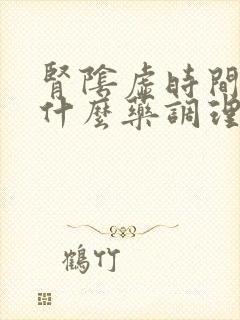 腎陰虛時間
什麼藥調理
鶴竹